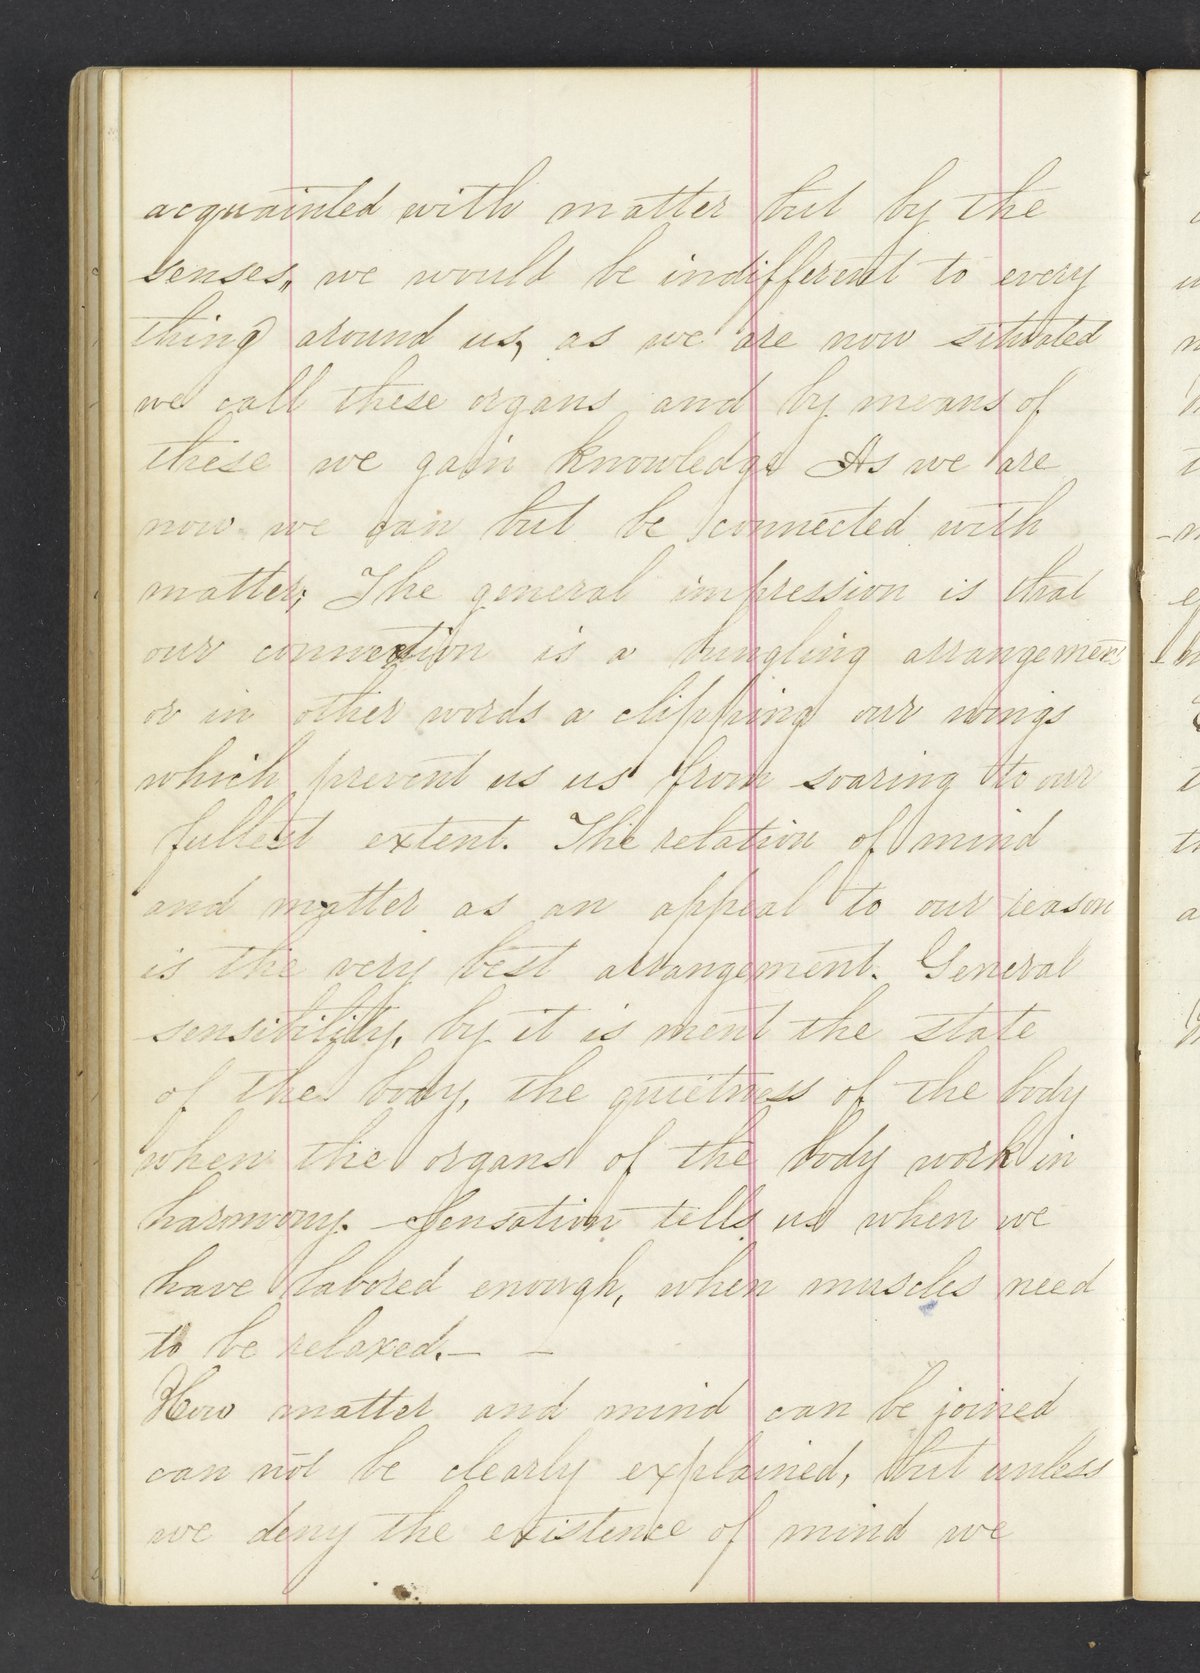 acquainted with matter but by the
senses, we would be indifferent to every
thing around us, as we are now situated
we call these organs and by means of
these we gain knowledge As we are
now we can but be connected with
matter; The general impression is that
our connection is a bungling arrangement
or in other words a clipping our wings
which prevent us us from soaring to our
fullest extent. The relation of mind
and matter as an appeal to our reason
is the very best arrangement. General
sensibility, by it is ment the state
of the body, the quietness of the body
when the organs of the body work in
harmony. Sensation tells us when we
have labored enough, when muscles need
to be relaxed. — —
How matter and mind can be joined
can not be clearly explained, but unless
we deny the existence of mind we